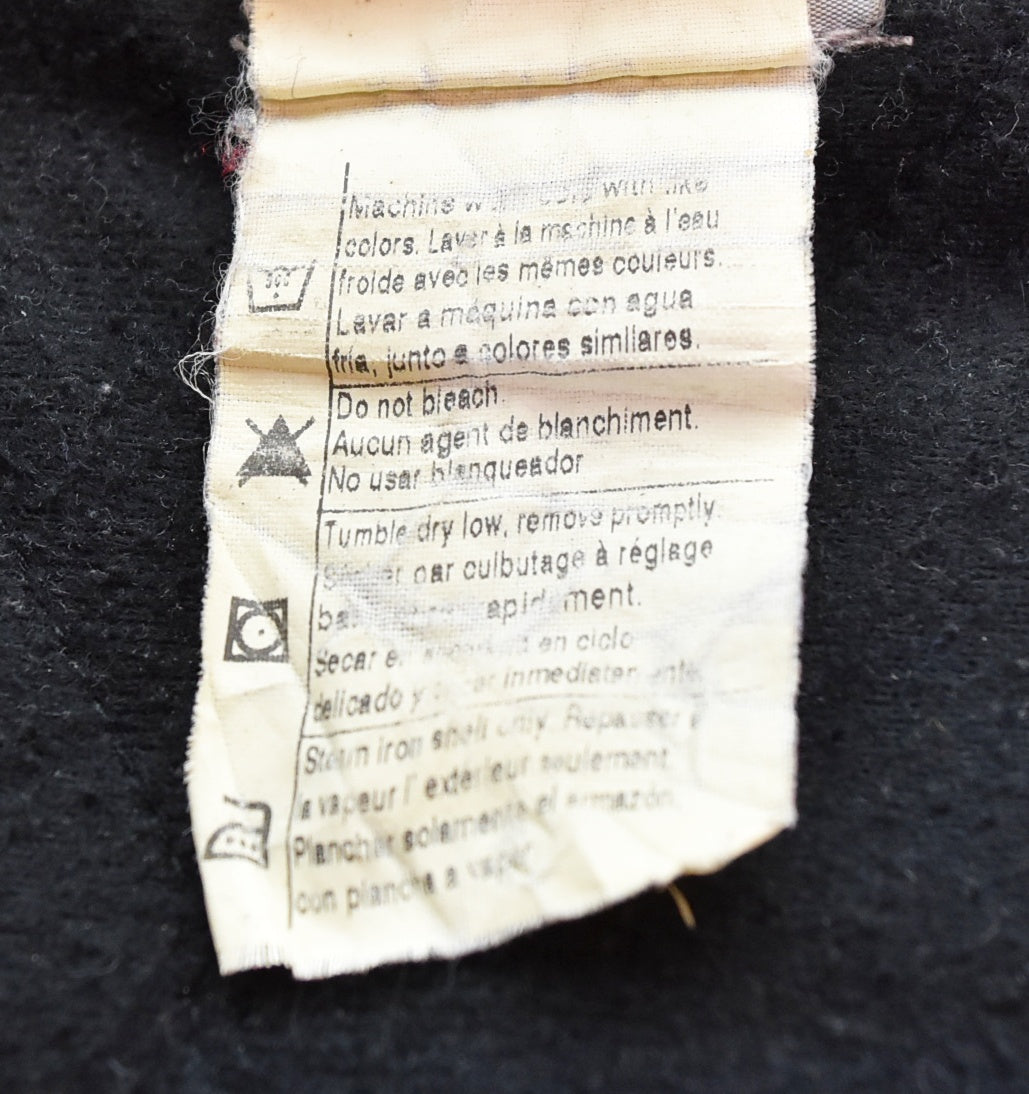 Machine with like
colors. Laver à la machine à l'eau
froide avec les mêmes couleurs.
Lavar a maquina con agua
fria, junto a colores similares.
Do not bleach.
Aucun agent de blanchiment.
No usar blanqueador
Tumble dry low, remove promptly.
par culbutage à réglage
Secar en ciclo
delicado y
Steam iron shell only. Repasser
la vapeur l' extérieur seulement.
Planchar solamente el armazón
con plancha a vapor